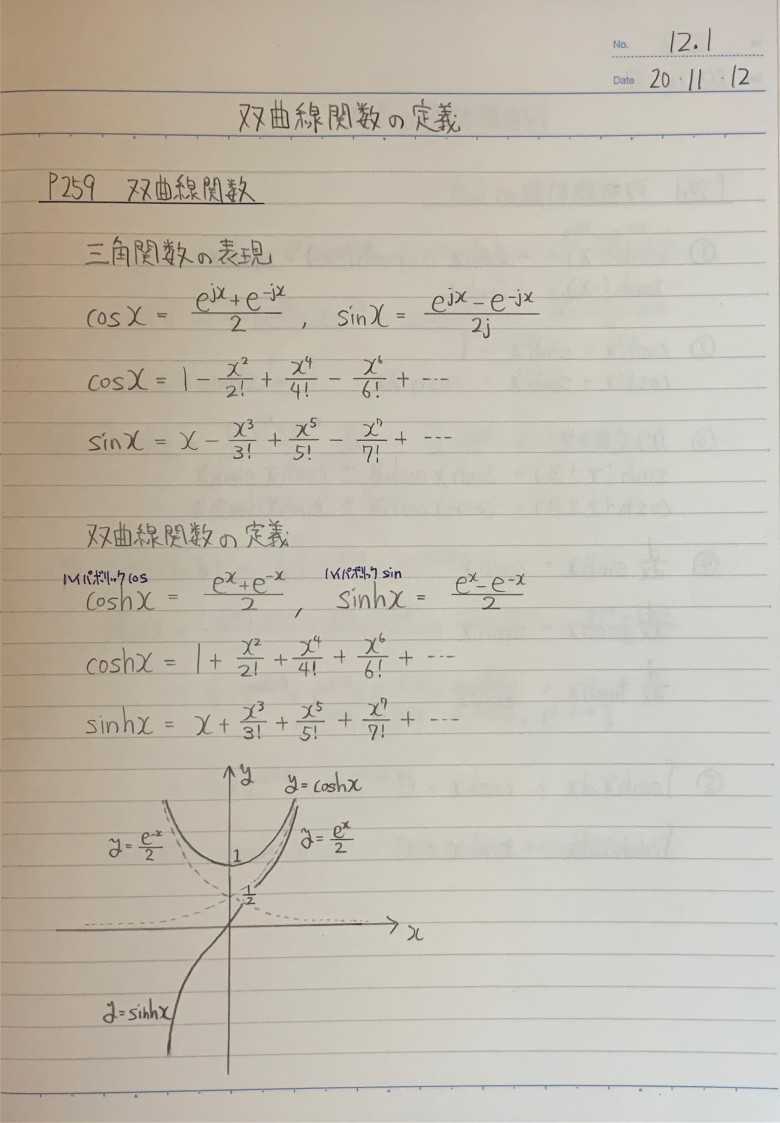 No. 12.1
Date 20・11・12
双曲線関数の定義
P259 双曲線関数
三角関数の表現
cosx = (e^{jx} + e^{-jx})/2 , sinx = (e^{jx} - e^{-jx})/2j
cosx = 1 - x²/2! + x⁴/4! - x⁶/6! + ⋯
sinx = x - x³/3! + x⁵/5! - x⁷/7! + ⋯
双曲線関数の定義
ハイパボリックcos ハイパボリックsin
coshx = (e^x + e^{-x})/2 , sinhx = (e^x - e^{-x})/2
coshx = 1 + x²/2! + x⁴/4! + x⁶/6! + ⋯
sinhx = x + x³/3! + x⁵/5! + x⁷/7! + ⋯
y y=coshx
y = e^{-x}/2 1 y = e^x/2
1/2
x
y=sinhx